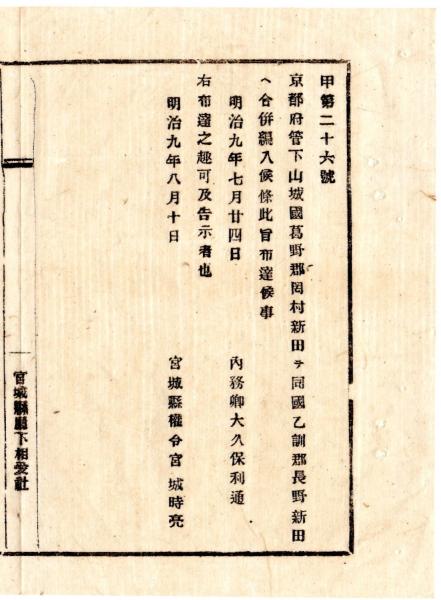 甲第二十六號
京都府管下山城國葛野郡岡村新田ヲ同國乙訓郡長野新田
ヘ合併編入候條此旨布達候事
明治九年七月廿四日
內務卿大久保利通
右布達之趣可及告示者也
明治九年八月十日
宮城縣權令宮城時亮
宮城縣廳下相愛社